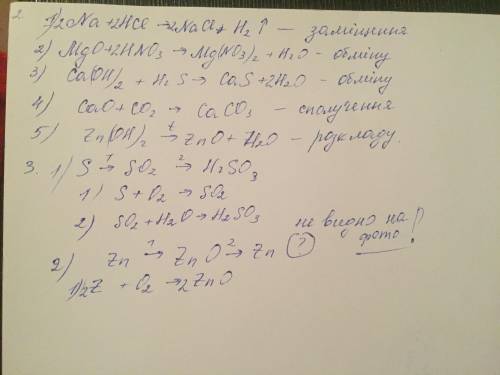 2.
1) 2Na + 2HCl → 2NaCl + H₂↑ — заміщення
2) MgO + 2HNO₃ → Mg(NO₃)₂ + H₂O - обміну
3) Ca(OH)₂ + H₂S → CaS + 2H₂O - обміну
4) CaO + CO₂ → CaCO₃ — сполучення
5) Zn(OH)₂ →t ZnO + H₂O - розкладу.
3. 1) S →1 SO₂ →2 H₂SO₃
1) S + O₂ → SO₂
2) SO₂ + H₂O → H₂SO₃
не видно на фото!
2) Zn →1 ZnO →2 Zn (?)
1) 2Z + O₂ → 2ZnO